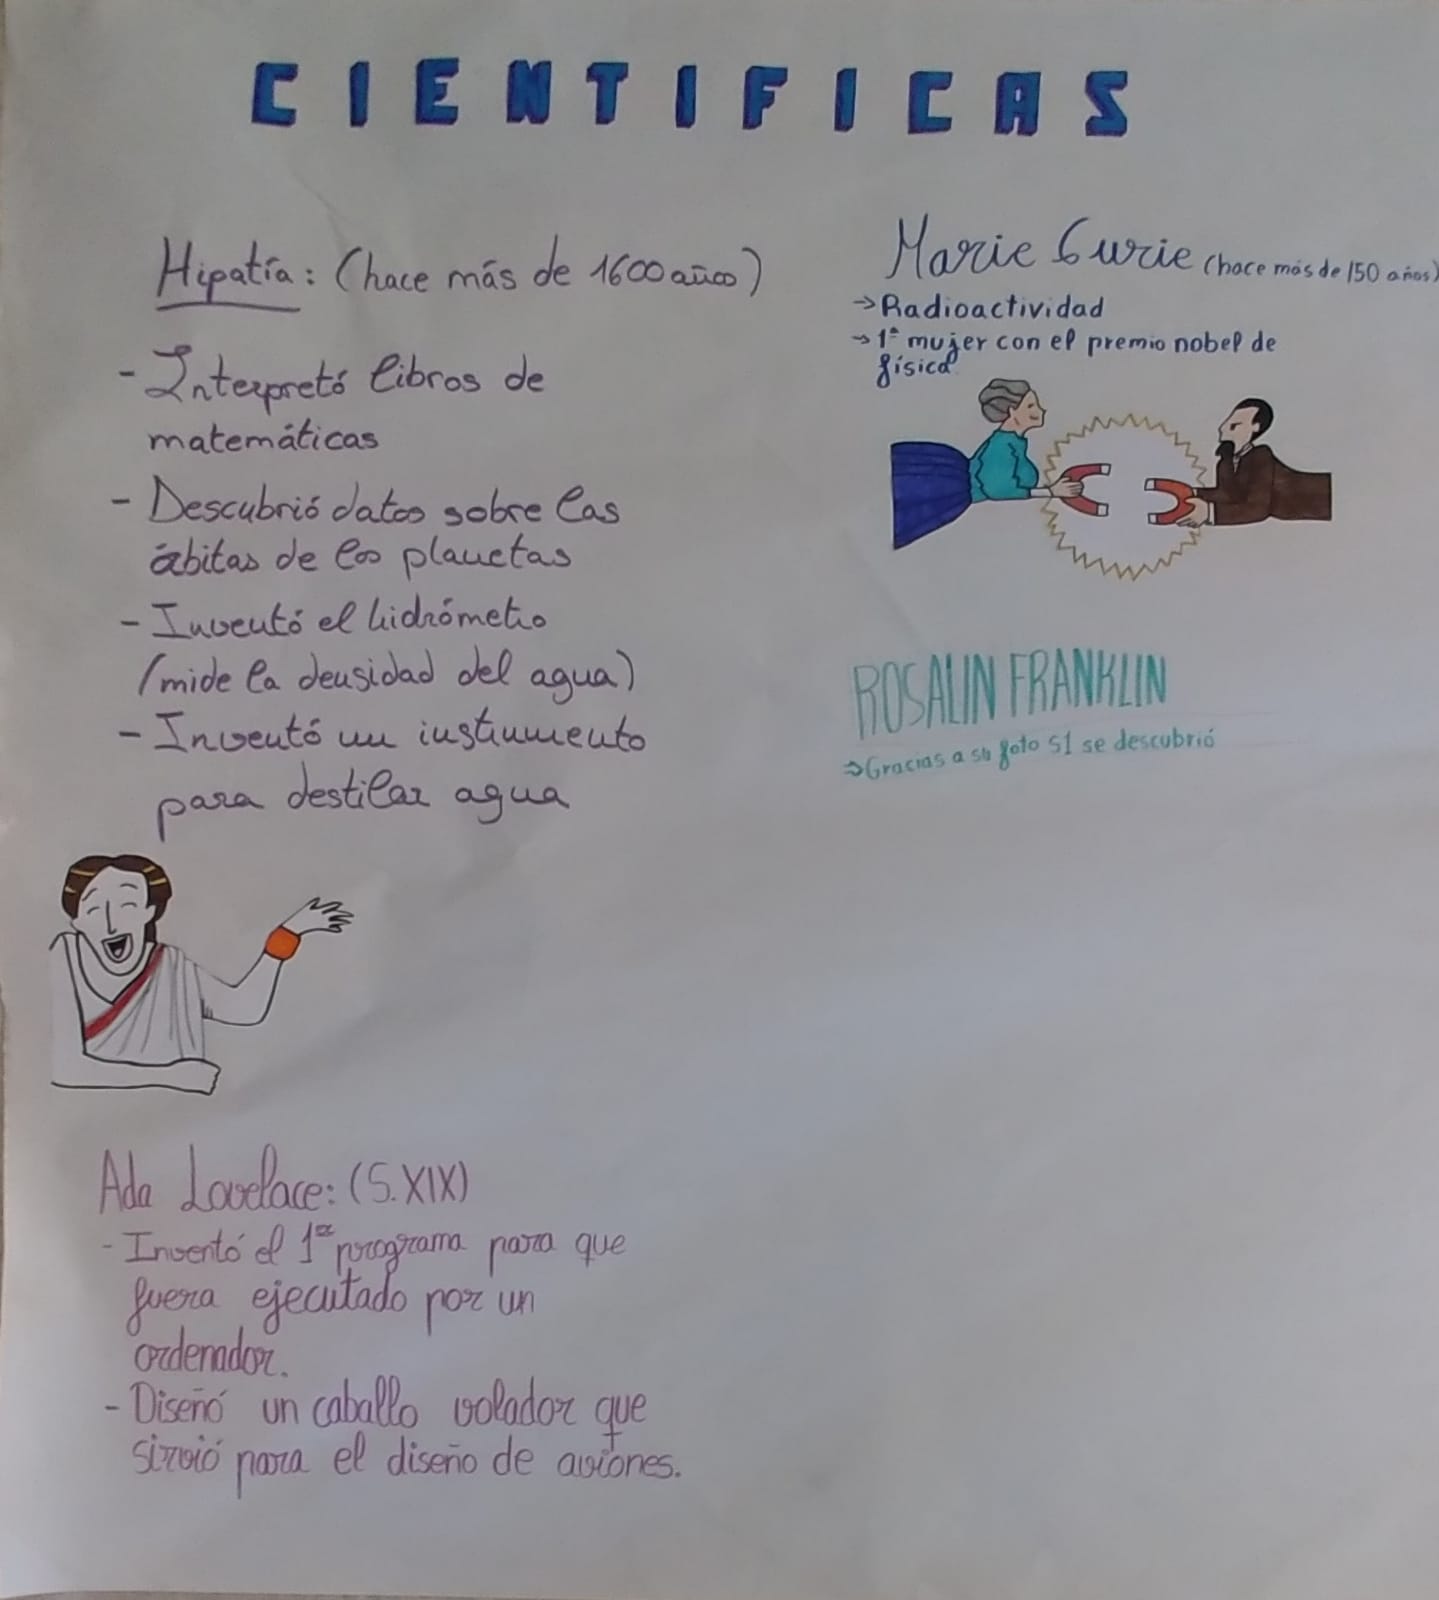 CIENTIFICAS
Hipatía: (hace más de 1600 años)
- Interpretó libros de
matemáticas
- Descubrió datos sobre las
órbitas de los planetas
- Inventó el hidrómetro
(mide la densidad del agua)
- Inventó un instrumento
para destilar agua
Ada Lovelace: (S.XIX)
- Inventó el 1er programa para que
fuera ejecutado por un
ordenador.
- Diseñó un caballo volador que
sirvió para el diseño de aviones.
Marie Curie (hace más de 150 años)
→ Radioactividad
→ 1ª mujer con el premio nobel de
física
ROSALIN FRANKLIN
⇒ Gracias a su foto 51 se descubrió